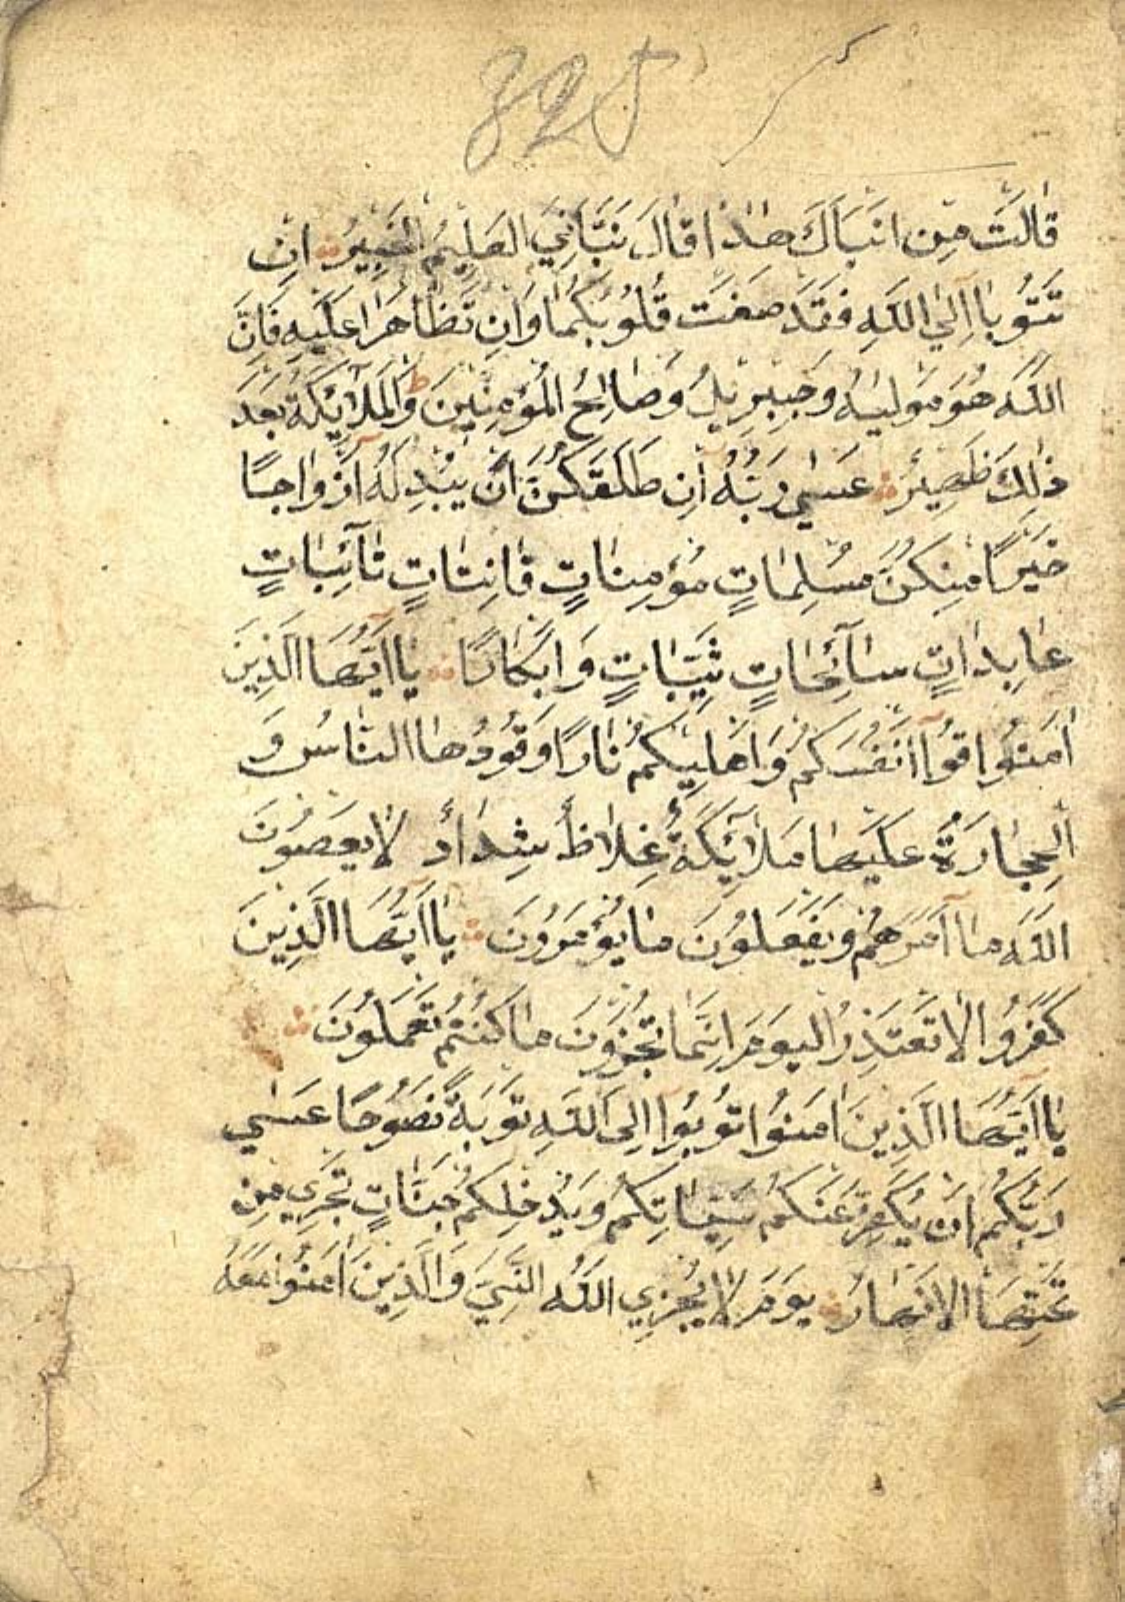 328
قَالَتْ مَنْ اَنْبَاَكَ هٰذَا قَالَ نَبَّاَنِيَ الْعَلِيمُ الْخَبِيرُ اِنْ
تَتُوبَا اِلَي اللّٰهِ فَقَدْ صَغَتْ قُلُوبُكُمَا وَاِنْ تَظَاهَرَا عَلَيْهِ فَاِنَّ
اللّٰهَ هُوَ مَوْلٰيهُ وَجِبْرِيلُ وَصَالِحُ الْمُؤْمِنِينَ ط وَالْمَلَآئِكَةُ بَعْدَ
ذٰلِكَ ظَهِيرٌ عَسٰي رَبُّهُ اِنْ طَلَّقَكُنَّ اَنْ يُبْدِلَهُ اَزْوَاجًا
خَيْرًا مِنْكُنَّ مُسْلِمَاتٍ مُؤْمِنَاتٍ قَانِتَاتٍ تَآئِبَاتٍ
عَابِدَاتٍ سَآئِحَاتٍ ثَيِّبَاتٍ وَاَبْكَارًا يَآ اَيُّهَا الَّذِينَ
اٰمَنُوا قُوآ اَنْفُسَكُمْ وَاَهْلِيكُمْ نَارًا وَقُودُهَا النَّاسُ وَ
الْحِجَارَةُ عَلَيْهَا مَلَآئِكَةٌ غِلَاظٌ شِدَادٌ لَا يَعْصُونَ
اللّٰهَ مَآ اَمَرَهُمْ وَيَفْعَلُونَ مَا يُؤْمَرُونَ يَآ اَيُّهَا الَّذِينَ
كَفَرُوا لَا تَعْتَذِرُوا الْيَوْمَ اِنَّمَا تُجْزَوْنَ مَا كُنْتُمْ تَعْمَلُونَ
يَآ اَيُّهَا الَّذِينَ اٰمَنُوا تُوبُوآ اِلَى اللّٰهِ تَوْبَةً نَصُوحًا عَسٰي
رَبُّكُمْ اَنْ يُكَفِّرَ عَنْكُمْ سَيِّئَاتِكُمْ وَيُدْخِلَكُمْ جَنَّاتٍ تَجْرِي مِنْ
تَحْتِهَا الْاَنْهَارُ يَوْمَ لَا يُخْزِي اللّٰهُ النَّبِيَّ وَالَّذِينَ اٰمَنُوا مَعَهُ